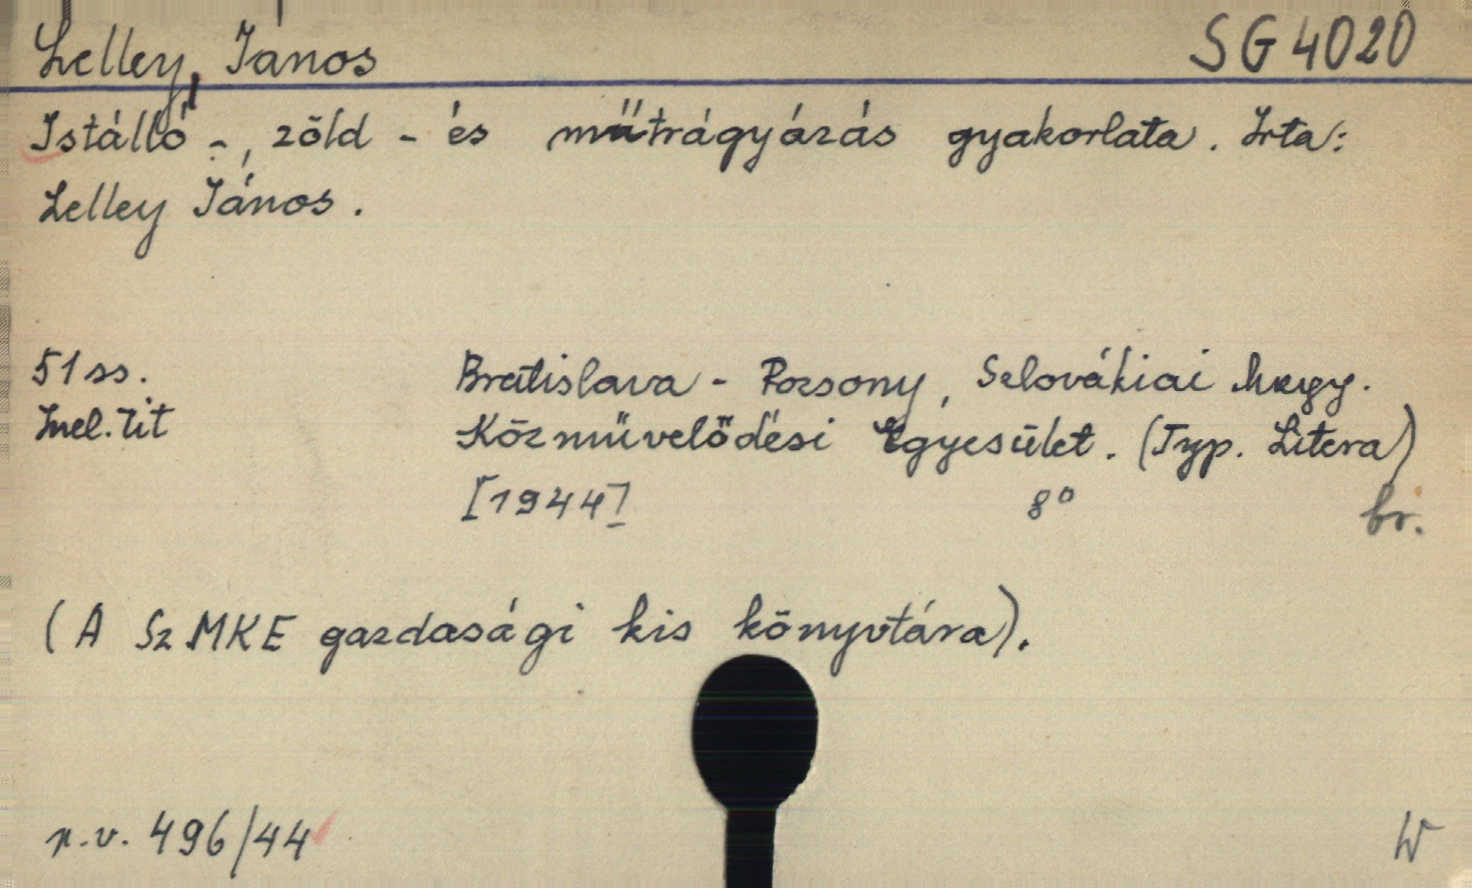 Lelley, János SG 4020
Istálló-, zöld- és műtrágyázás gyakorlata. Irta:
Lelley János.
51 ss. Bratislava - Pozsony, Szlovákiai Magy.
Inel. tit Közművelődési Egyesület. (Typ. Litera)
[1944] 8° br.
(A SzMKE gazdasági kis könyvtára).
n.v. 496/44 W